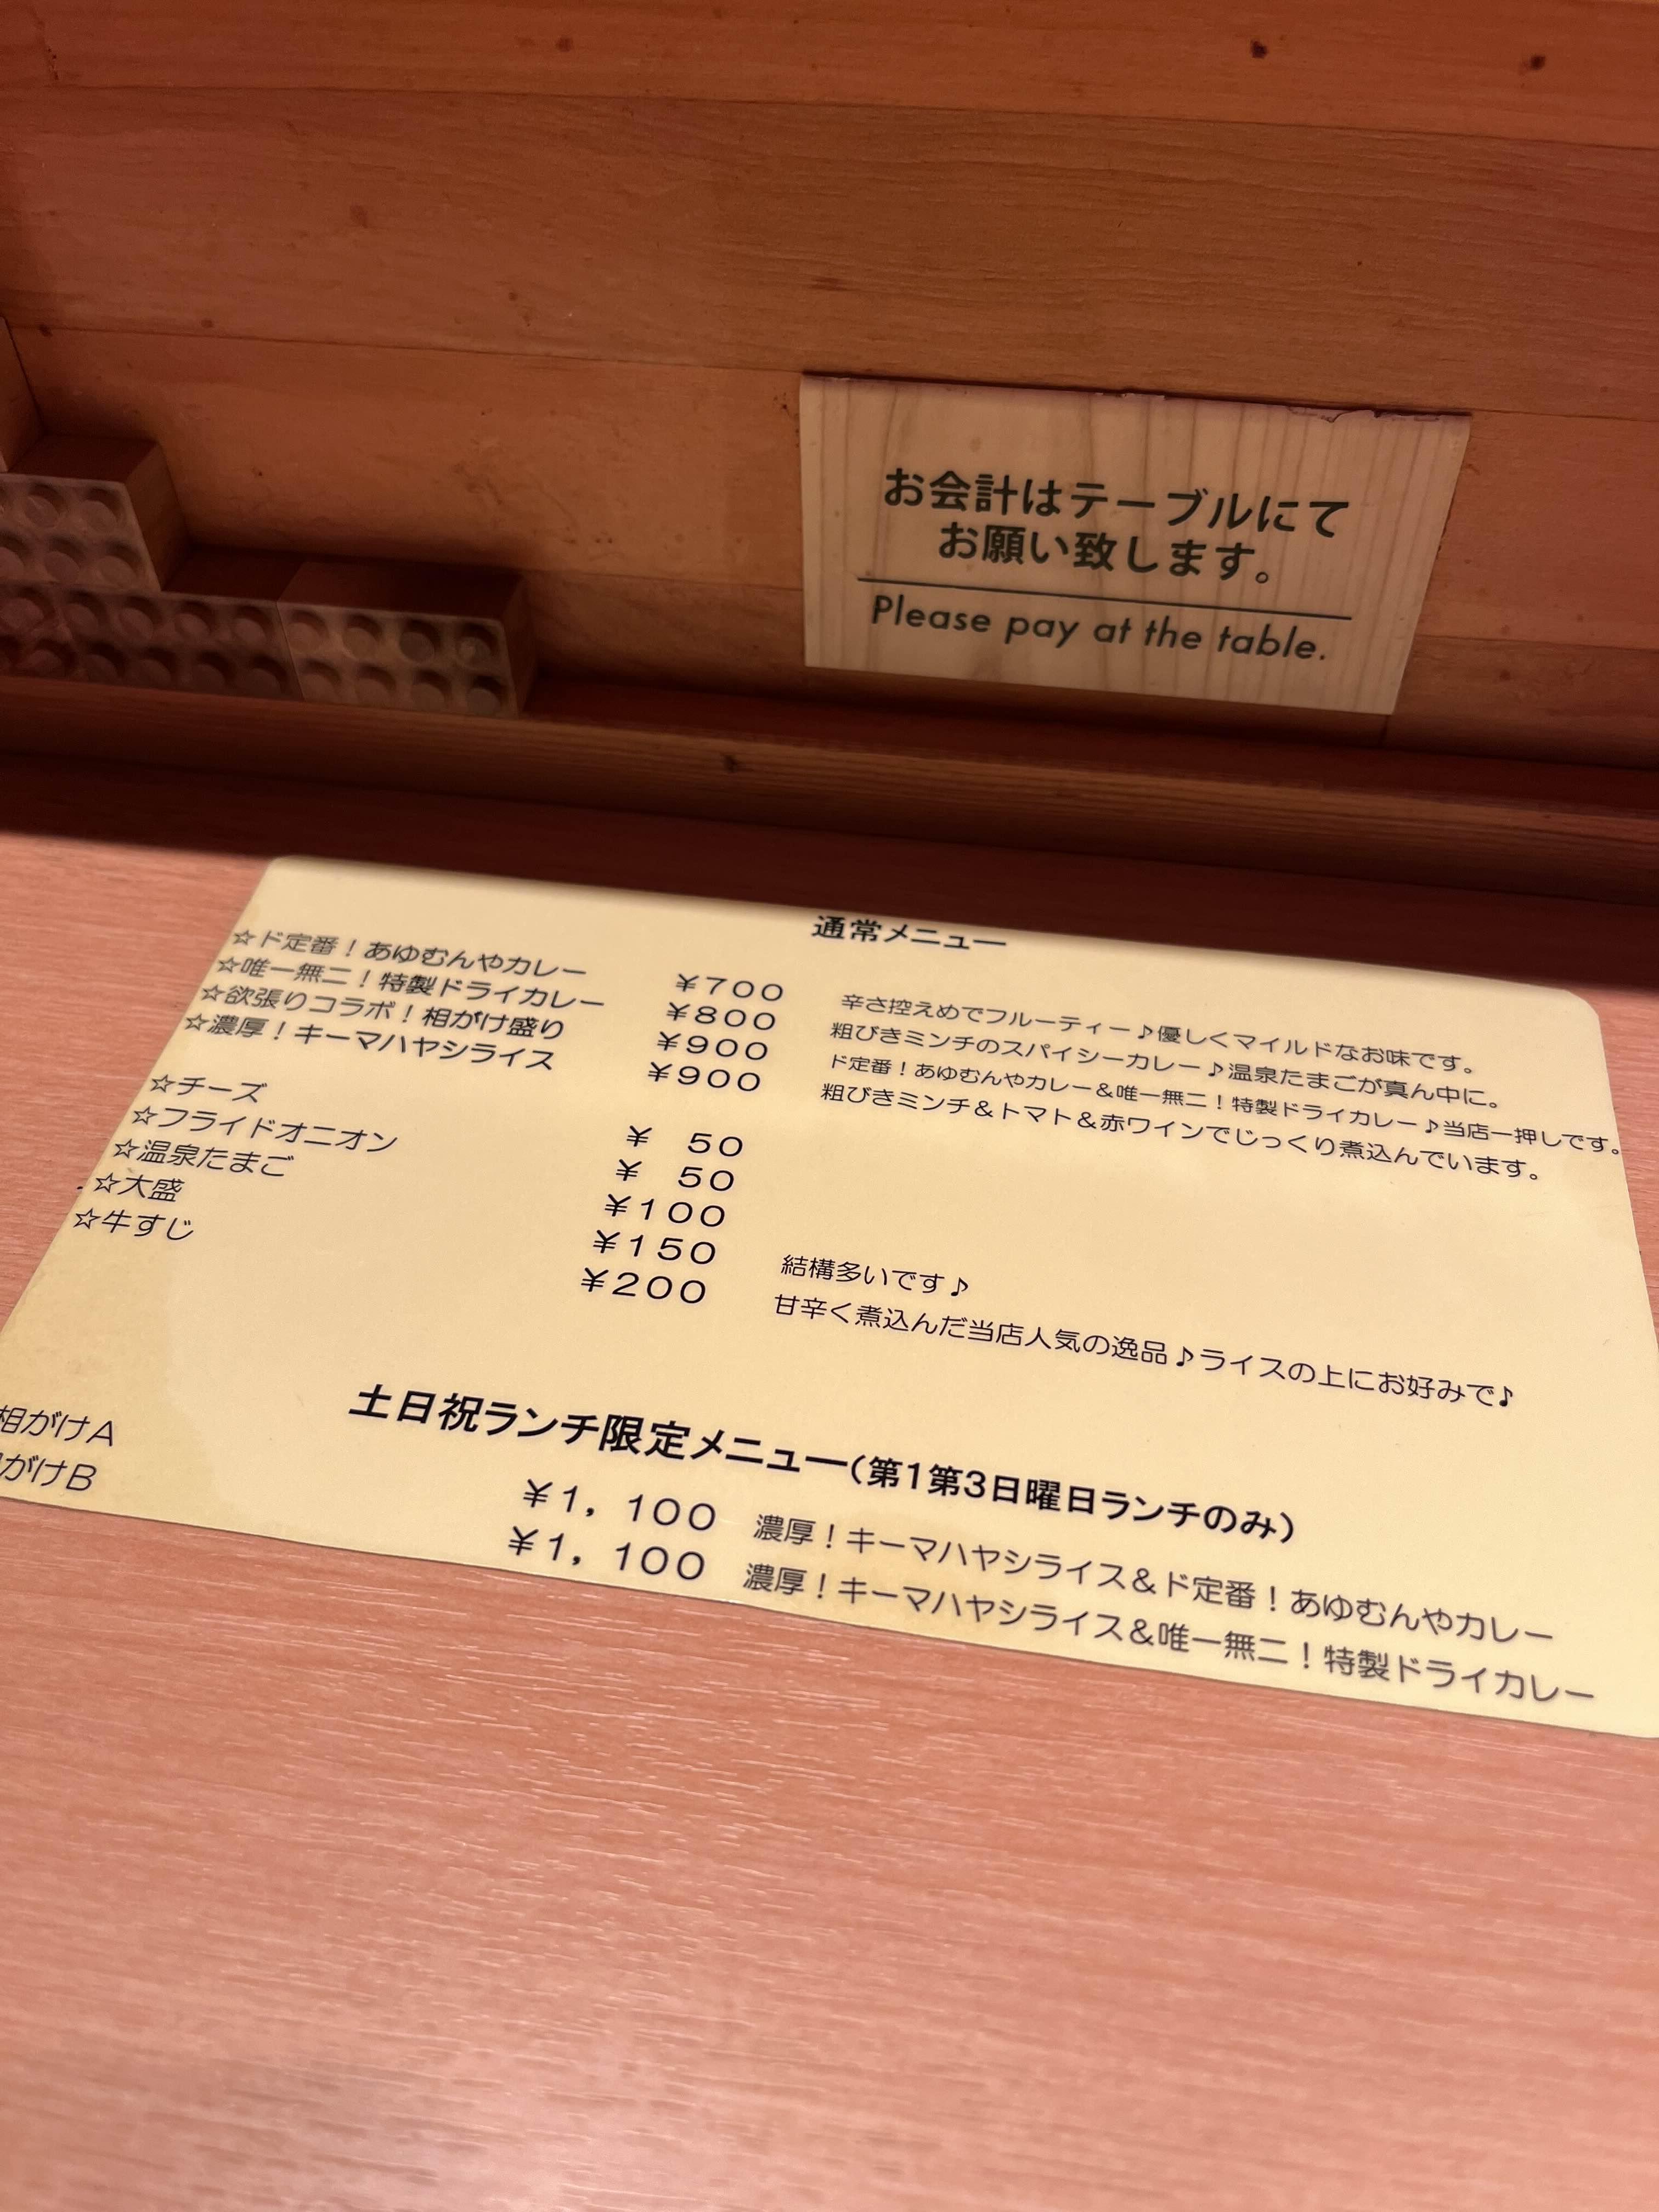 お会計はテーブルにて
お願い致します。
Please pay at the table.
通常メニュー
☆ド定番！あゆむんやカレー ¥700 辛さ控えめでフルーティー♪優しくマイルドなお味です。
☆唯一無二！特製ドライカレー ¥800 粗びきミンチのスパイシーカレー♪温泉たまごが真ん中に。
☆欲張りコラボ！相がけ盛り ¥900 ド定番！あゆむんやカレー＆唯一無二！特製ドライカレー♪当店一押しです。
☆濃厚！キーマハヤシライス ¥900 粗びきミンチ＆トマト＆赤ワインでじっくり煮込んでいます。
☆チーズ ¥ 50
☆フライドオニオン ¥ 50
☆温泉たまご ¥100
☆大盛 ¥150 結構多いです♪
☆牛すじ ¥200 甘辛く煮込んだ当店人気の逸品♪ライスの上にお好みで♪
土日祝ランチ限定メニュー(第1第3日曜日ランチのみ)
相がけA ¥1，100 濃厚！キーマハヤシライス＆ド定番！あゆむんやカレー
がけB ¥1，100 濃厚！キーマハヤシライス＆唯一無二！特製ドライカレー